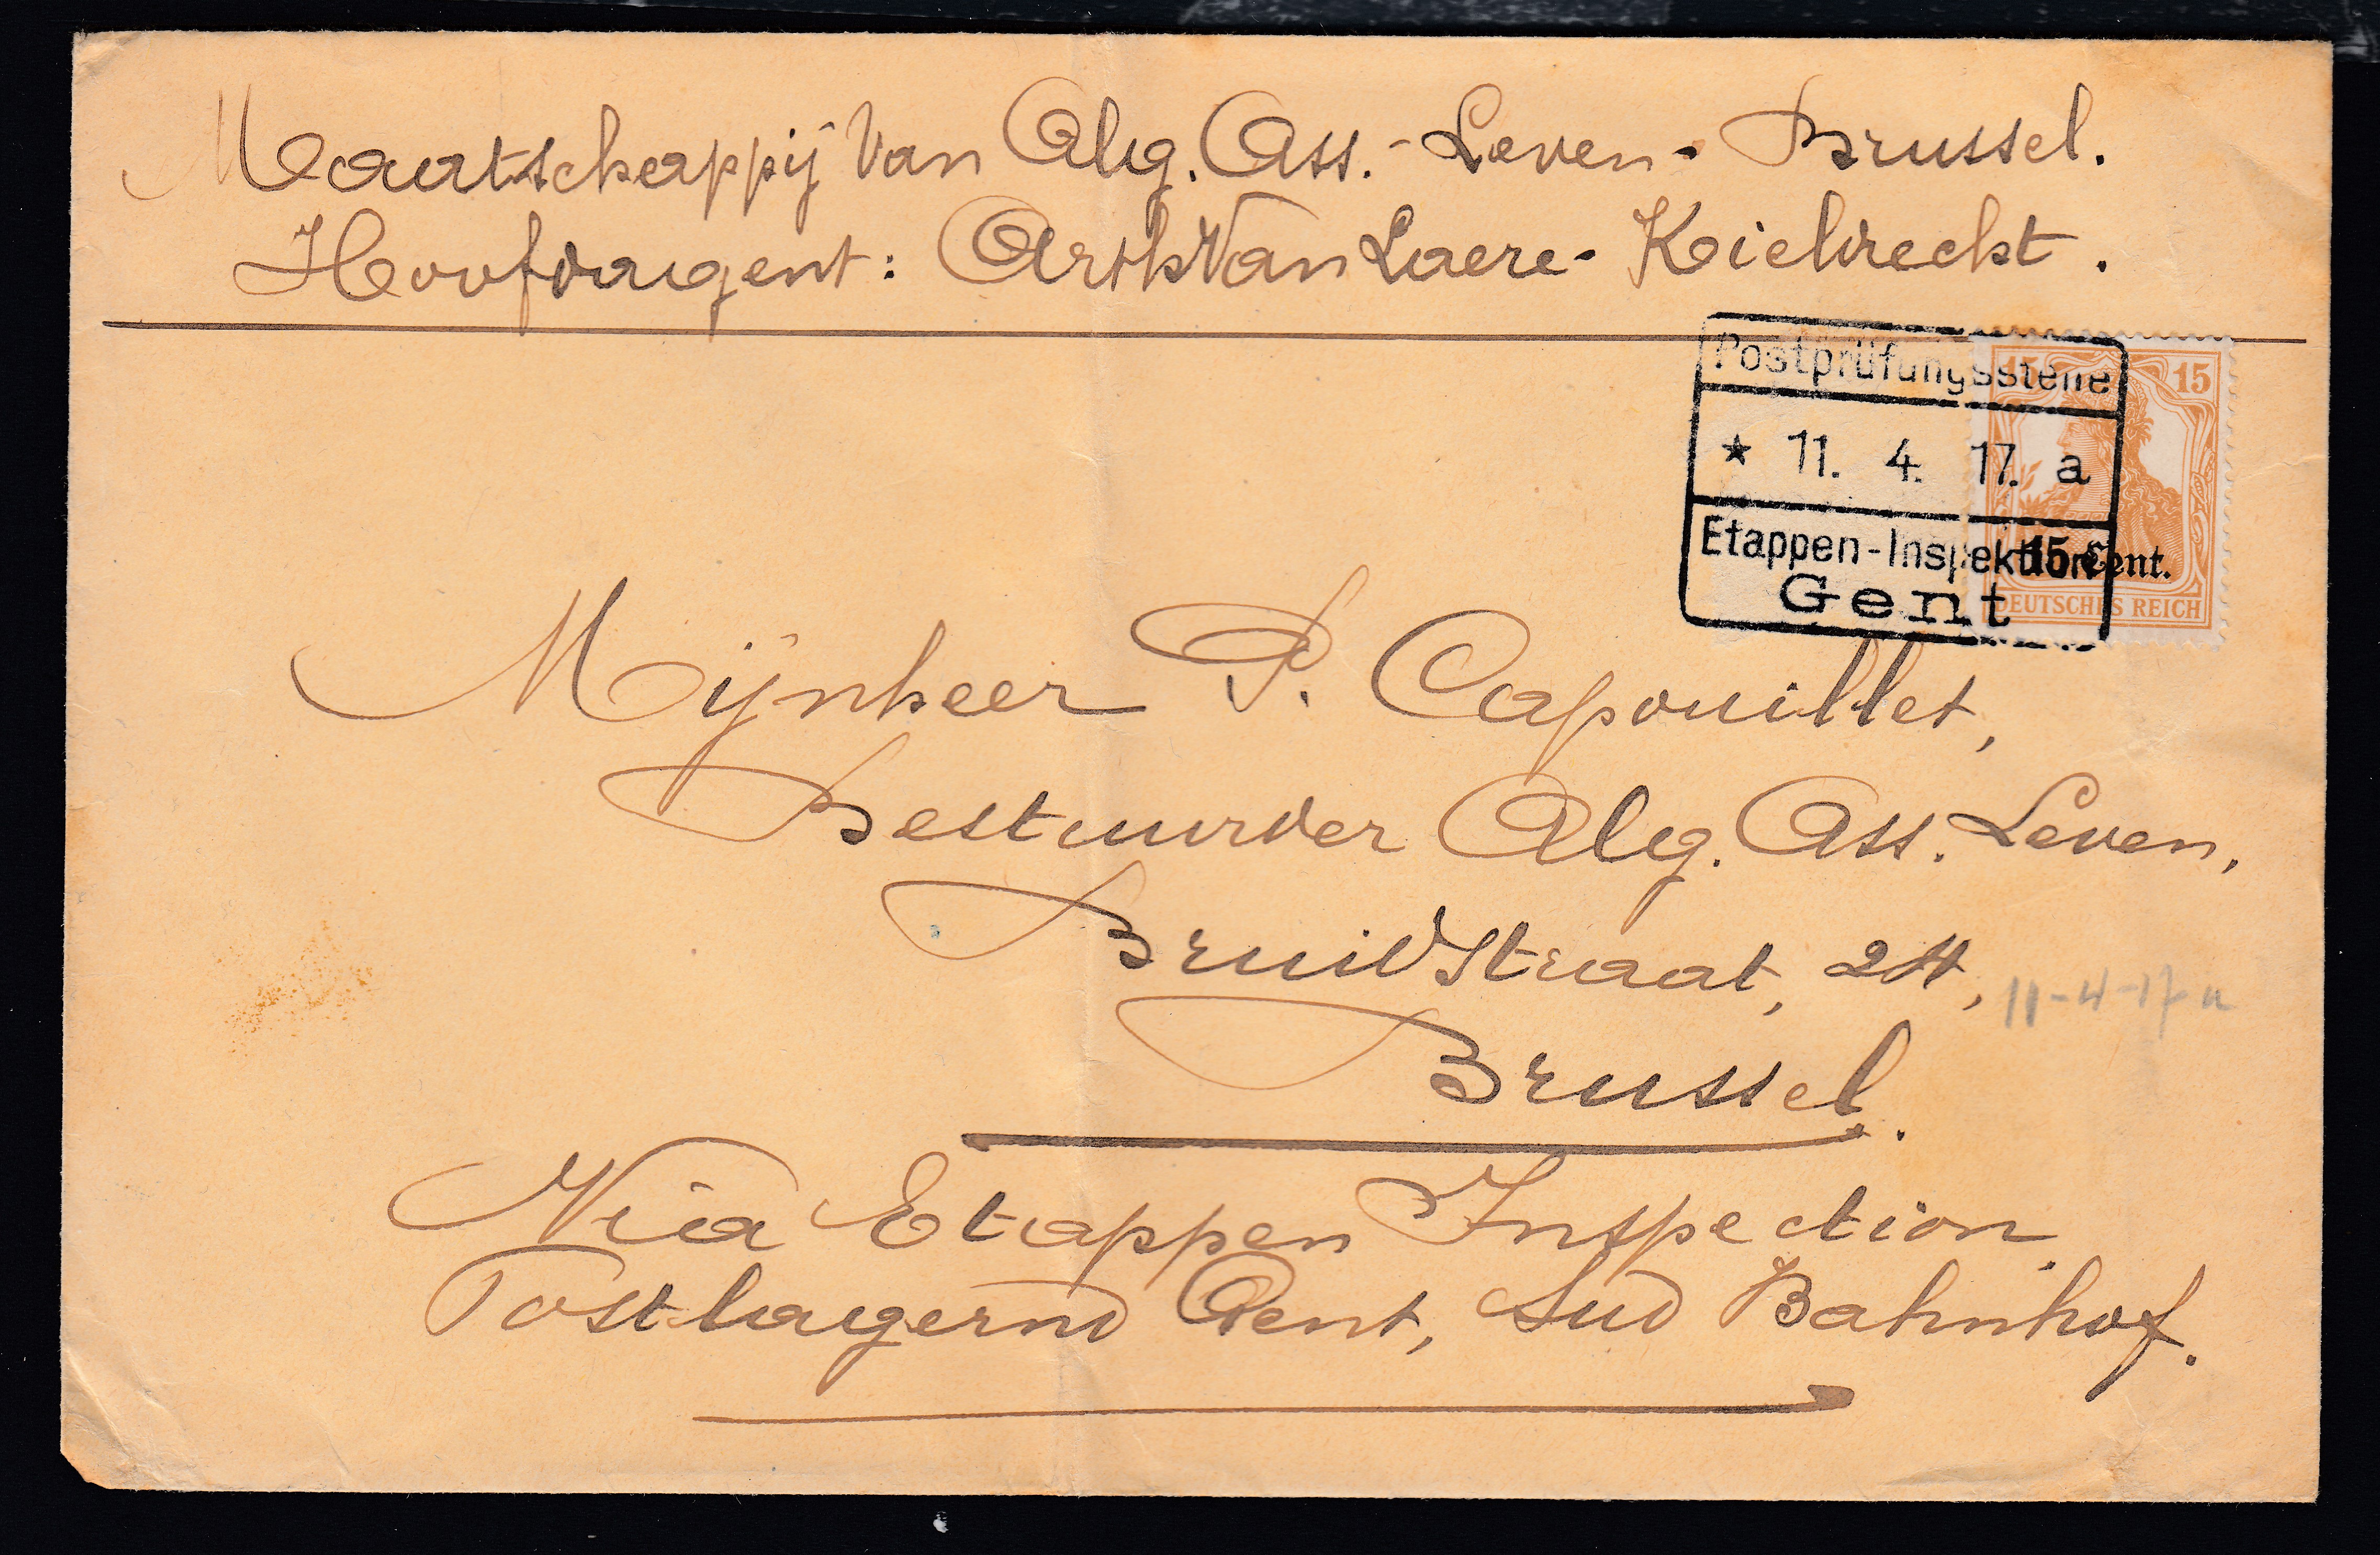 Maatschappij Van Alg. Ass. - Leven - Brussel.
Hoofdagent: Arth Van Laere - Kieldrecht.
Postprüfungsstelle
15 15
* 11. 4. 17. a
Etappen-Inspektion
15 Cent.
Gent
DEUTSCHES REICH
Mijnheer P. Capouillet,
Bestuurder Alg. Ass. Leven,
Bruidstraat, 24,
11-4-17 a
Brussel.
Via Etappen Inspection
Postlagernd Gent, Sud Bahnhof.